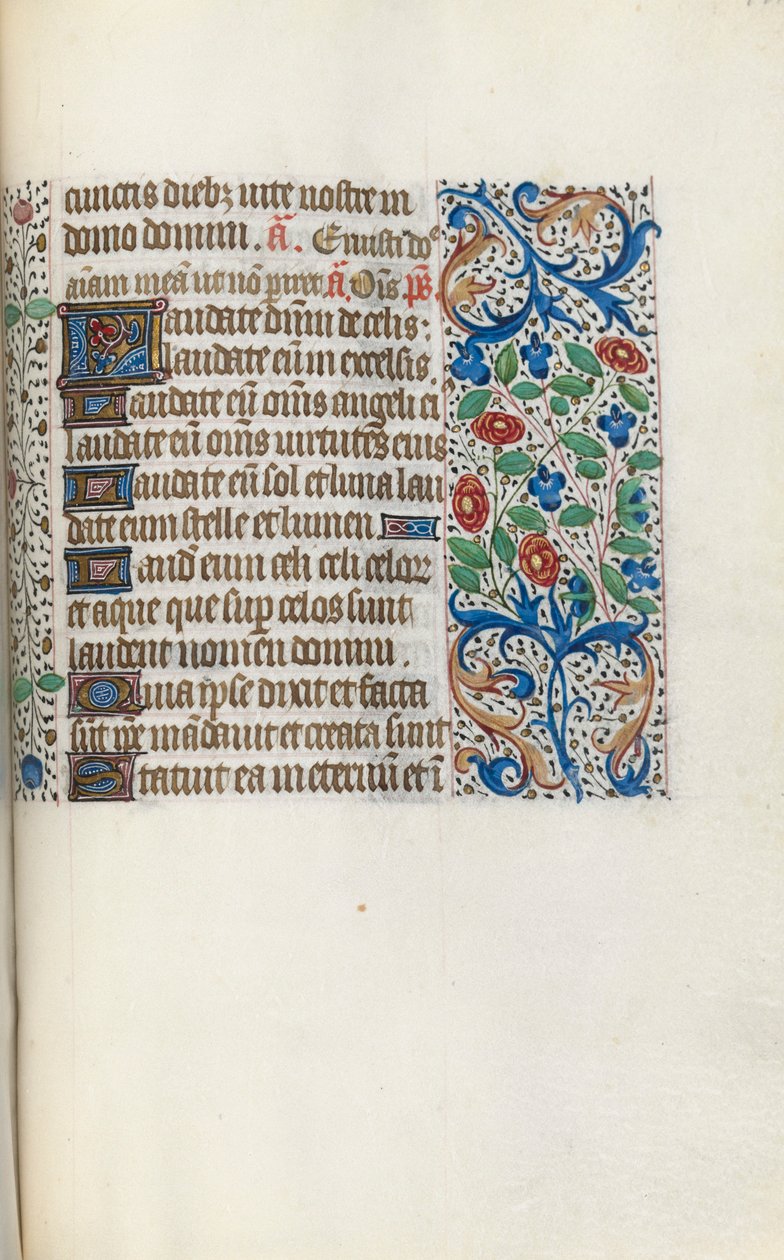 cunctis dieb⁊ uite nostre in
domo domini. añ. Eruisti do͞e
ai͞am mea͞ ut no͞ p͞iret. añ. O͞is p͞s.
Laudate dn͞m de celis:
laudate eu͞ in excelsis.
Laudate eu͞ om͞s angeli ei⁹
laudate eu͞ om͞s uirtutes eius
Laudate eu͞ sol et luna lau
date eum stelle et lumen
Laud eum celi celoꝝ
et aque que sup̱ celos sunt
laudent nomen domini.
Quia ip͞e dixit et facta
su͞t ip͞e ma͞dauit et creata sunt
Statuit ea in eternu͞ et i͞